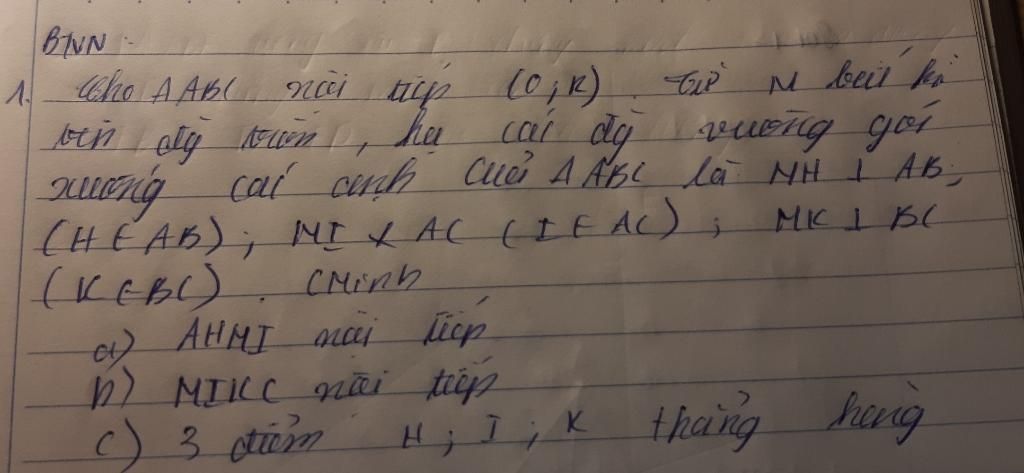 BTVN
1. Cho ΔABC nội tiếp (O;R). Từ M bất kì
trên đg tròn, hạ các đg vuông góc
xuống các cạnh của ΔABC là MH ⊥ AB,
(H ∈ AB); MI ⊥ AC (I ∈ AC); MK ⊥ BC
(K ∈ BC). CMinh
a) AHMI nội tiếp
b) MIKC nội tiếp
c) 3 điểm H; I; K thẳng hàng